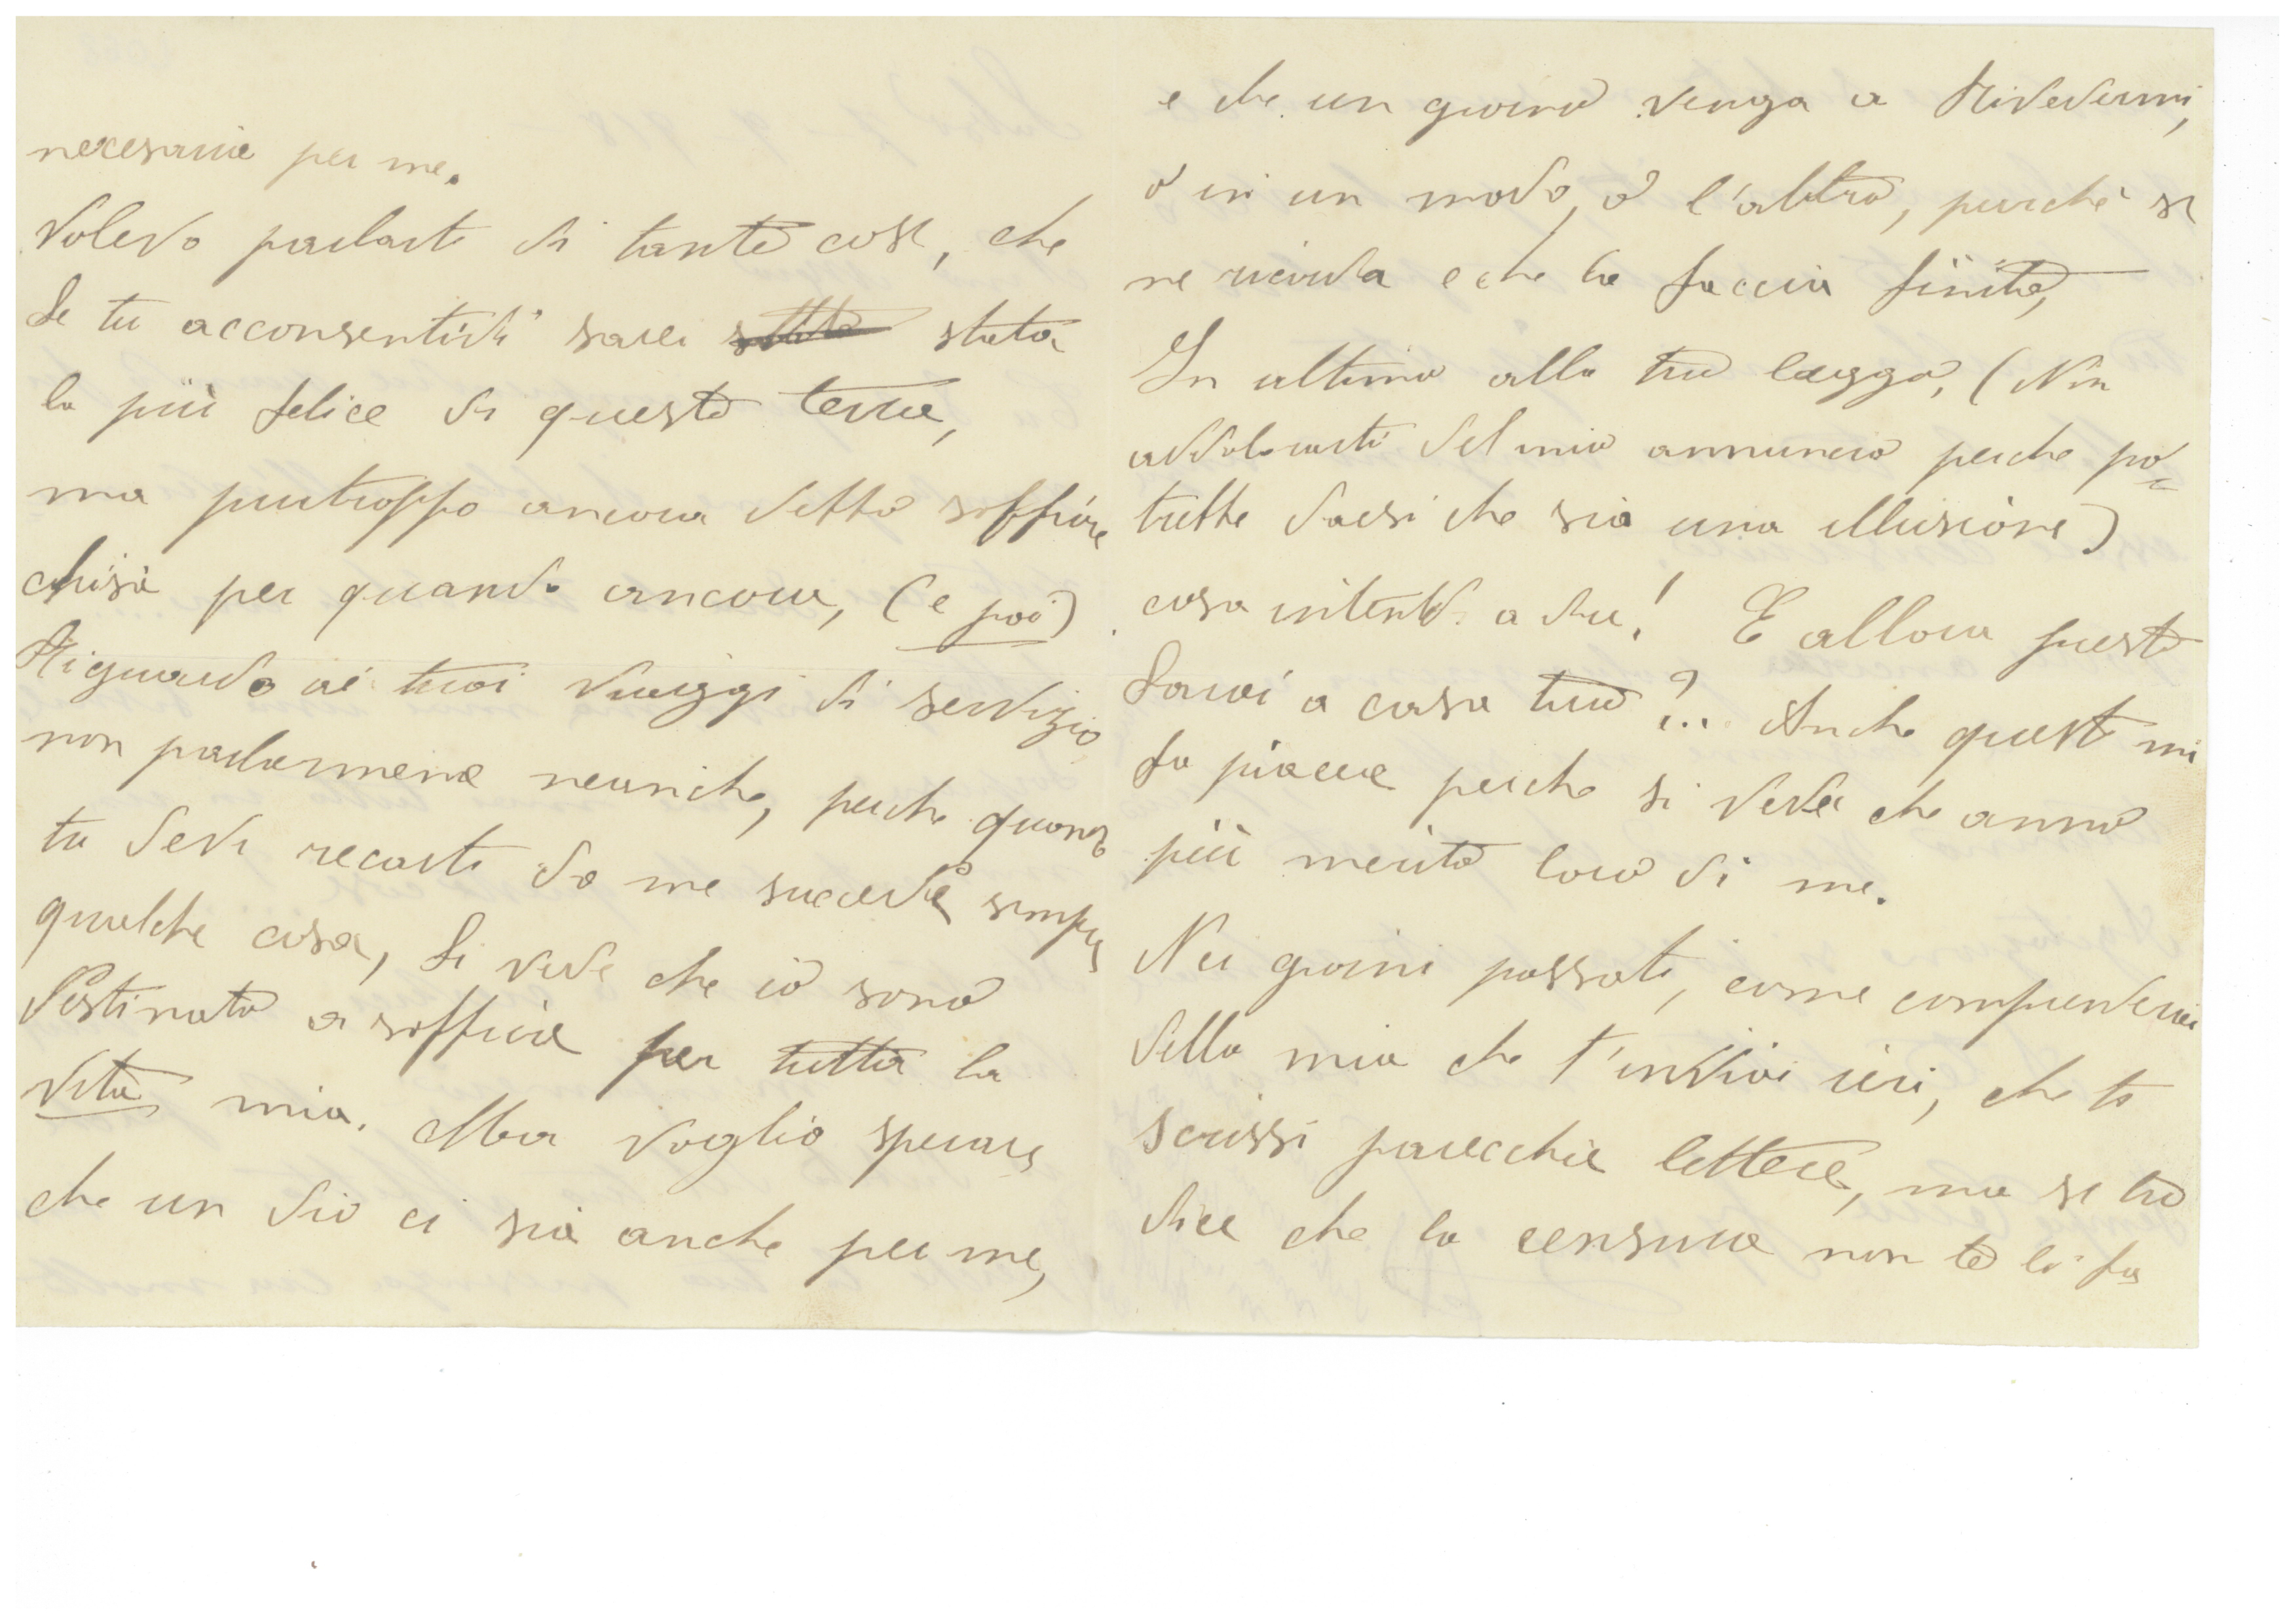 necessarie per me.
Volevo parlarti di tante cose, che
se tu acconsentivi sarei stata
la più felice di questa terra,
ma purtroppo ancora debbo soffrire
chisà per quando ancora, (e poi)
Riguardo ai tuoi viaggi di servizio
non parlarmene neanche, perche quando
tu devi recarti da me succede sempre
qualche cosa, si vede che io sono
destinata a soffrire per tutta la
vita mia. Ma voglio sperare
che un dio ci sia anche per me,
e che un giorno venga a rivedermi,
o in un modo, o l'altro, purchè se
ne ricorda e che la faccia finita,
In ultimo alla tua leggo, (Non
addolorarti del mio annuncio perche po=
trebbe darsi che sia una illusione)
cosa intendi a dire! E allora presto
sarai a casa tua?.. Anche questo mi
fa piacere perche si vede che anno
più merito loro di me.
Nei giorni passati, come comprenderai
della mia che t'inviai ieri, che ti
scrissi parecchie lettere, ma se tu
dice che la censura non te le fa